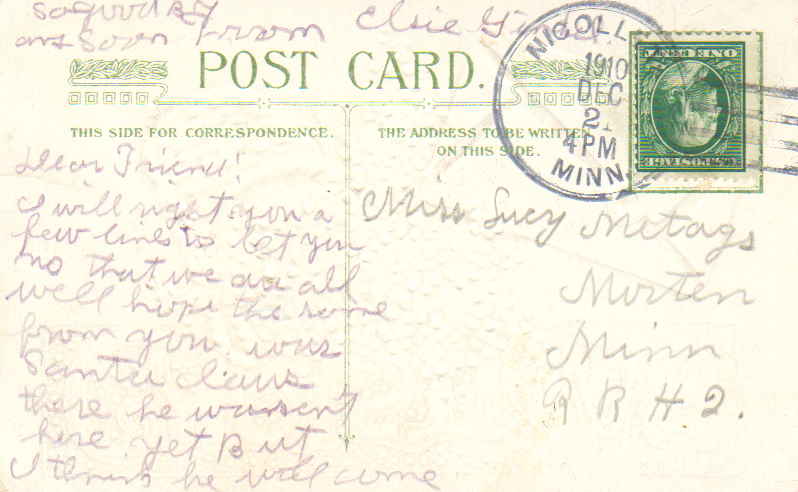 so good By
ans Soon From Elsie
POST CARD.
THIS SIDE FOR CORRESPONDENCE.
THE ADDRESS TO BE WRITTEN
ON THIS SIDE.
NICOLL
1910
DEC
4 PM
MINN
Dear Friend!
I will right you a
few lines to let you
no that we are all
well hope the same
from you was
Santa Claus
there he wassent
here yet But
I think he will come
Miss Lucy Metags
Morten
Minn
R R # 2.